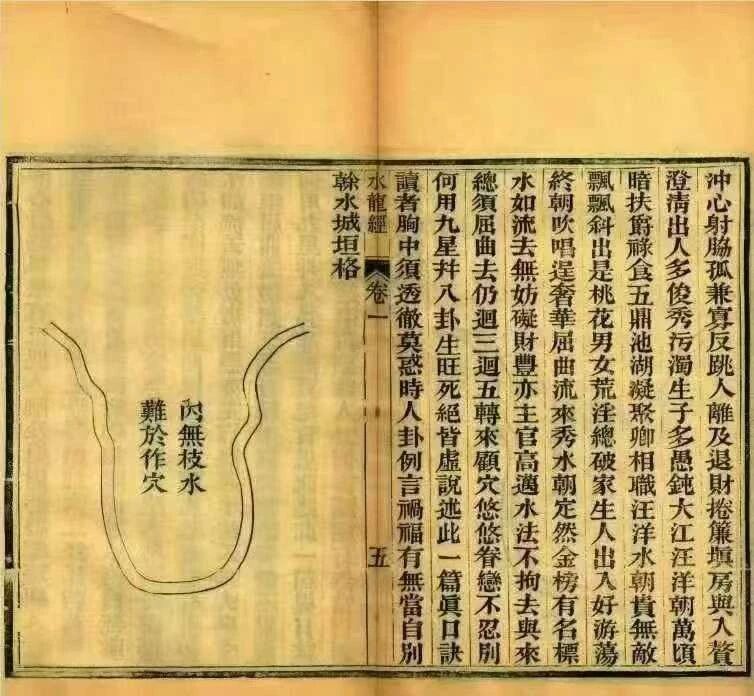 沖心射脇孤兼寡反跳人離及退財捲簾塡房與入贅
澄淸出人多俊秀污濁生子多愚鈍大江汪洋朝萬頃
暗扶爵祿食五鼎池湖凝聚卿相職汪洋水朝貴無敵
飄飄斜出是桃花男女荒淫總破家生人出入好游蕩
終朝吹唱逞奢華屈曲流來秀水朝定然金榜有名標
水如流去無妨礙財豐亦主官高邁水法不拘去與來
總須屈曲去仍迴三迴五轉來顧穴悠悠眷戀不忍別
何用九星幷八卦生旺死絕皆虛說述此一篇眞口訣
讀者胸中須透徹莫惑時人卦例言禍福有無當自別
水龍經 卷一 五
榦水城垣格
內無枝水
難於作穴